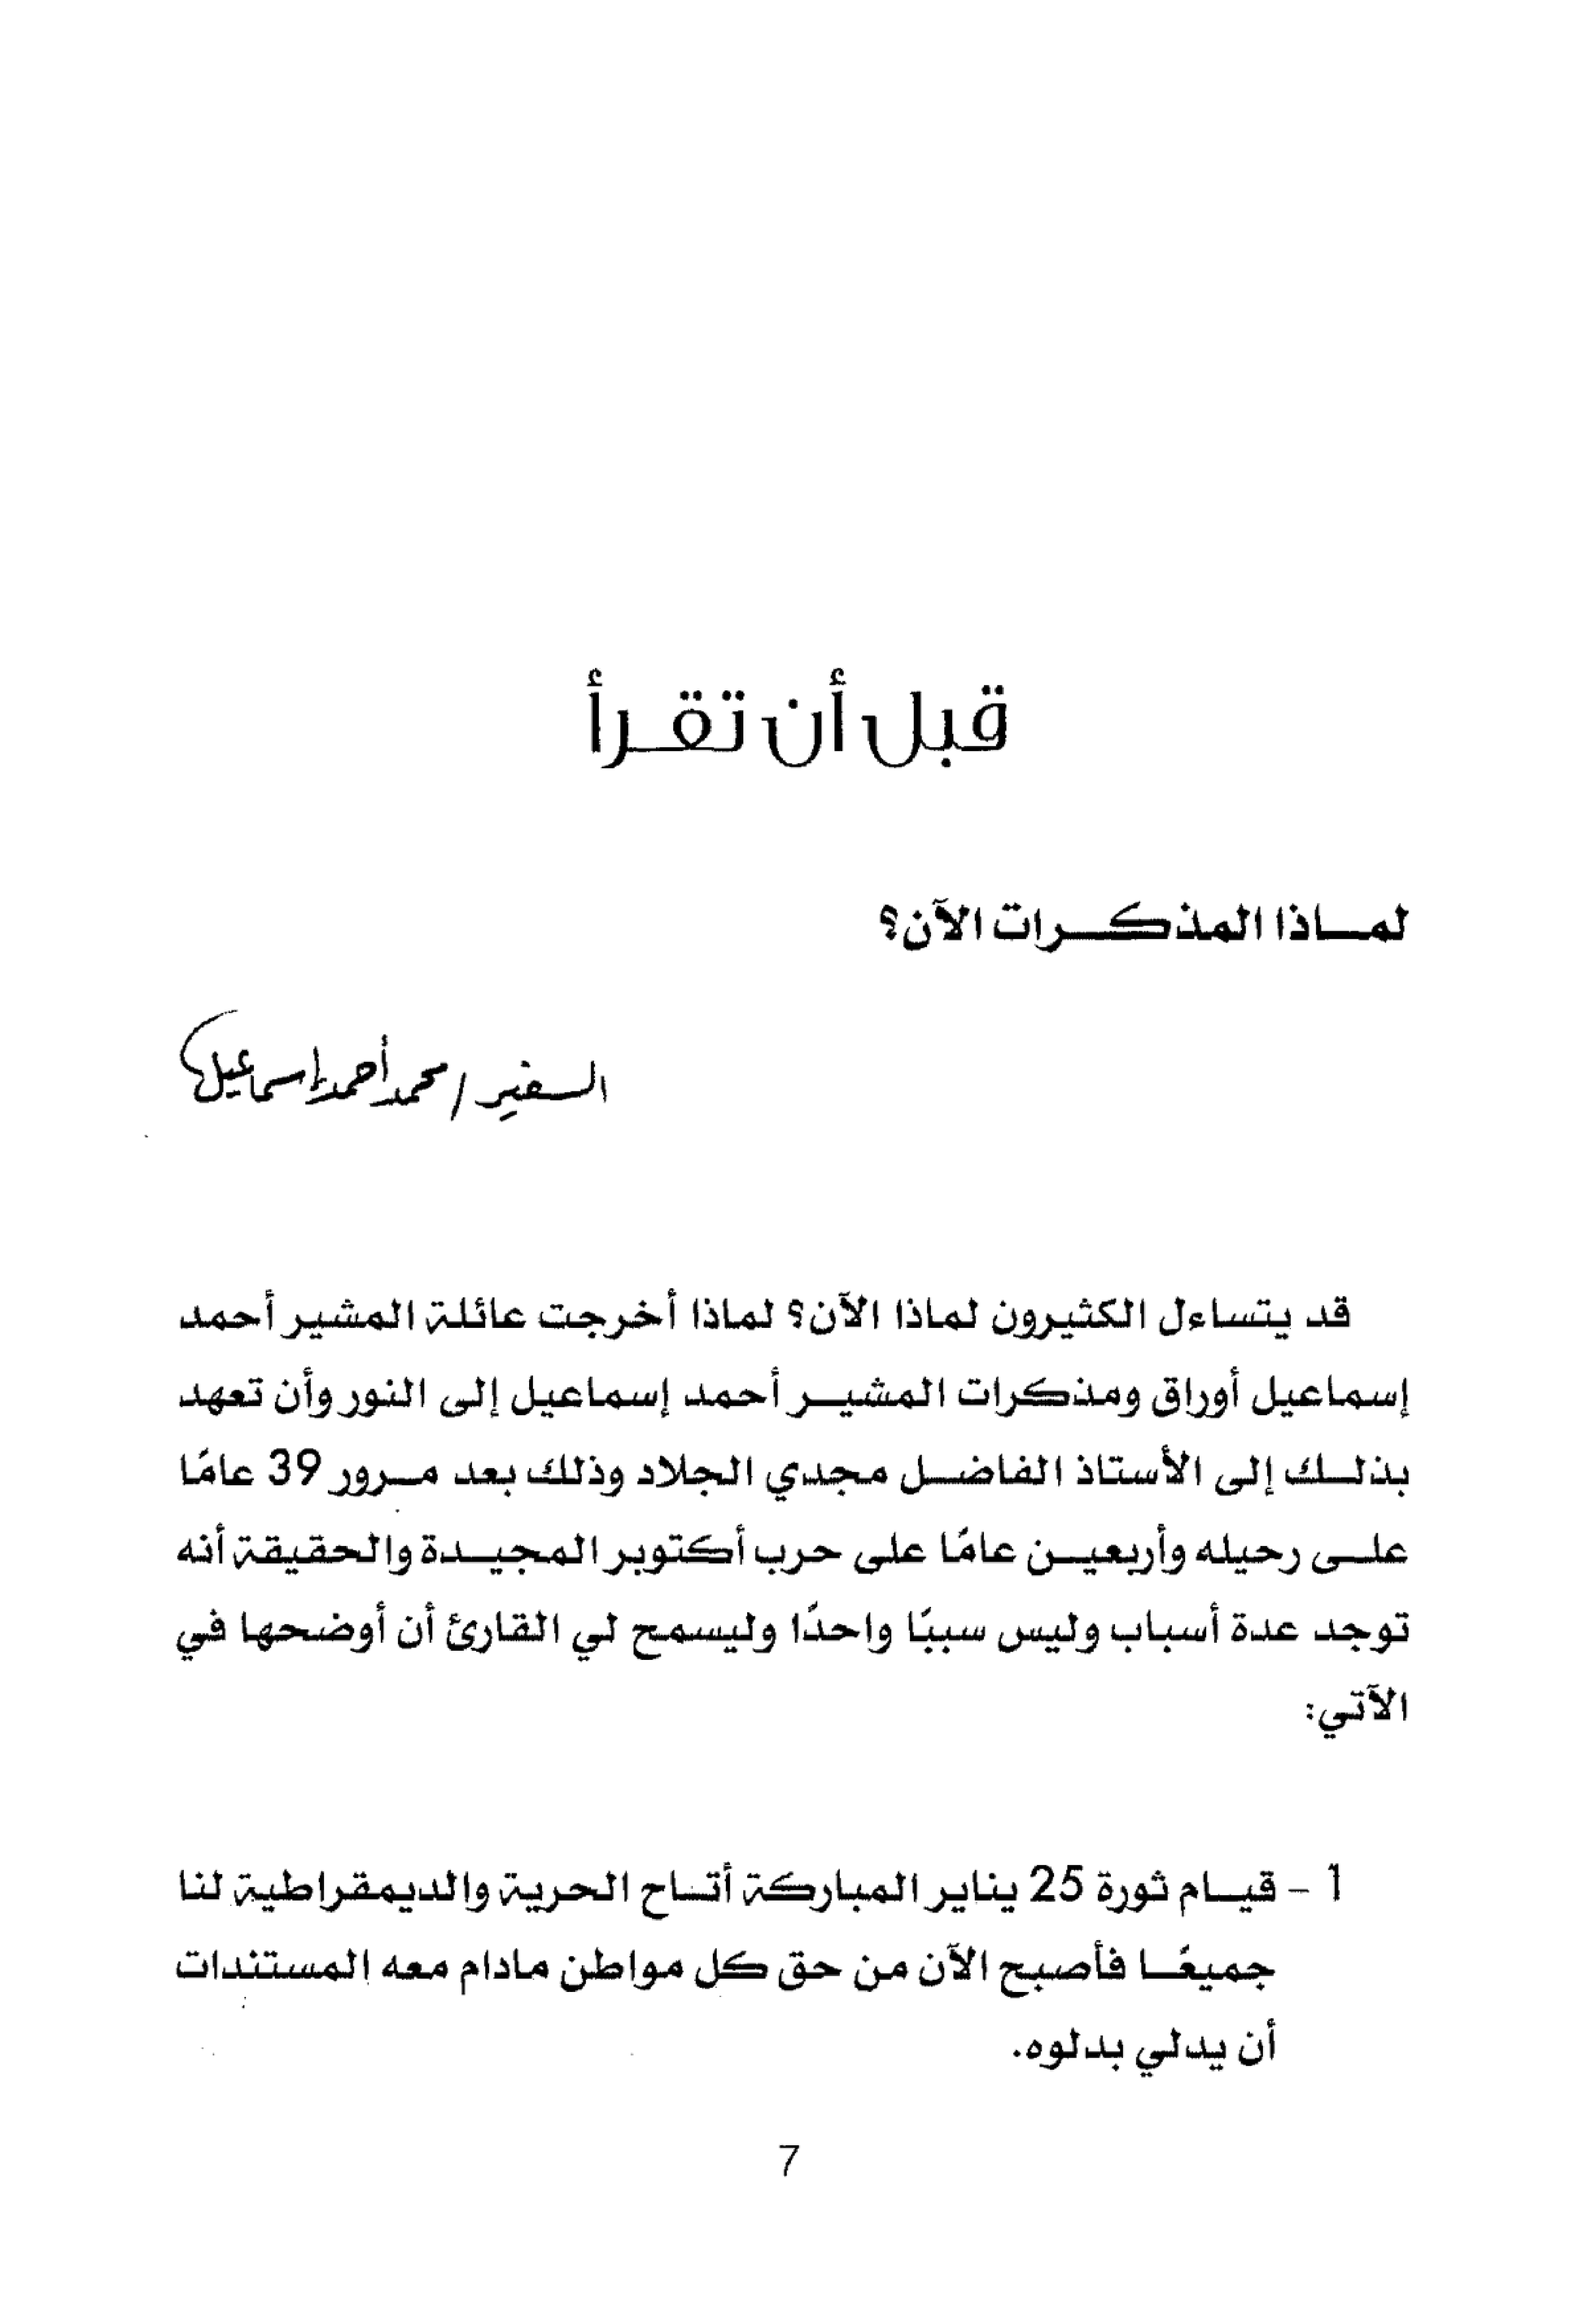 قبل أن تقرأ
لماذا المذكرات الآن؟
السفير / محمد أحمد إسماعيل
قد يتساءل الكثيرون لماذا الآن؟ لماذا أخرجت عائلة المشير أحمد
إسماعيل أوراق ومذكرات المشير أحمد إسماعيل إلى النور وأن تعهد
بذلك إلى الأستاذ الفاضل مجدي الجلاد وذلك بعد مرور 39 عامًا
على رحيله وأربعين عامًا على حرب أكتوبر المجيدة والحقيقة أنه
توجد عدة أسباب وليس سببًا واحدًا وليسمح لي القارئ أن أوضحها في
الآتي:
1 - قيام ثورة 25 يناير المباركة أتاح الحرية والديمقراطية لنا
جميعًا فأصبح الآن من حق كل مواطن مادام معه المستندات
أن يدلي بدلوه.
7